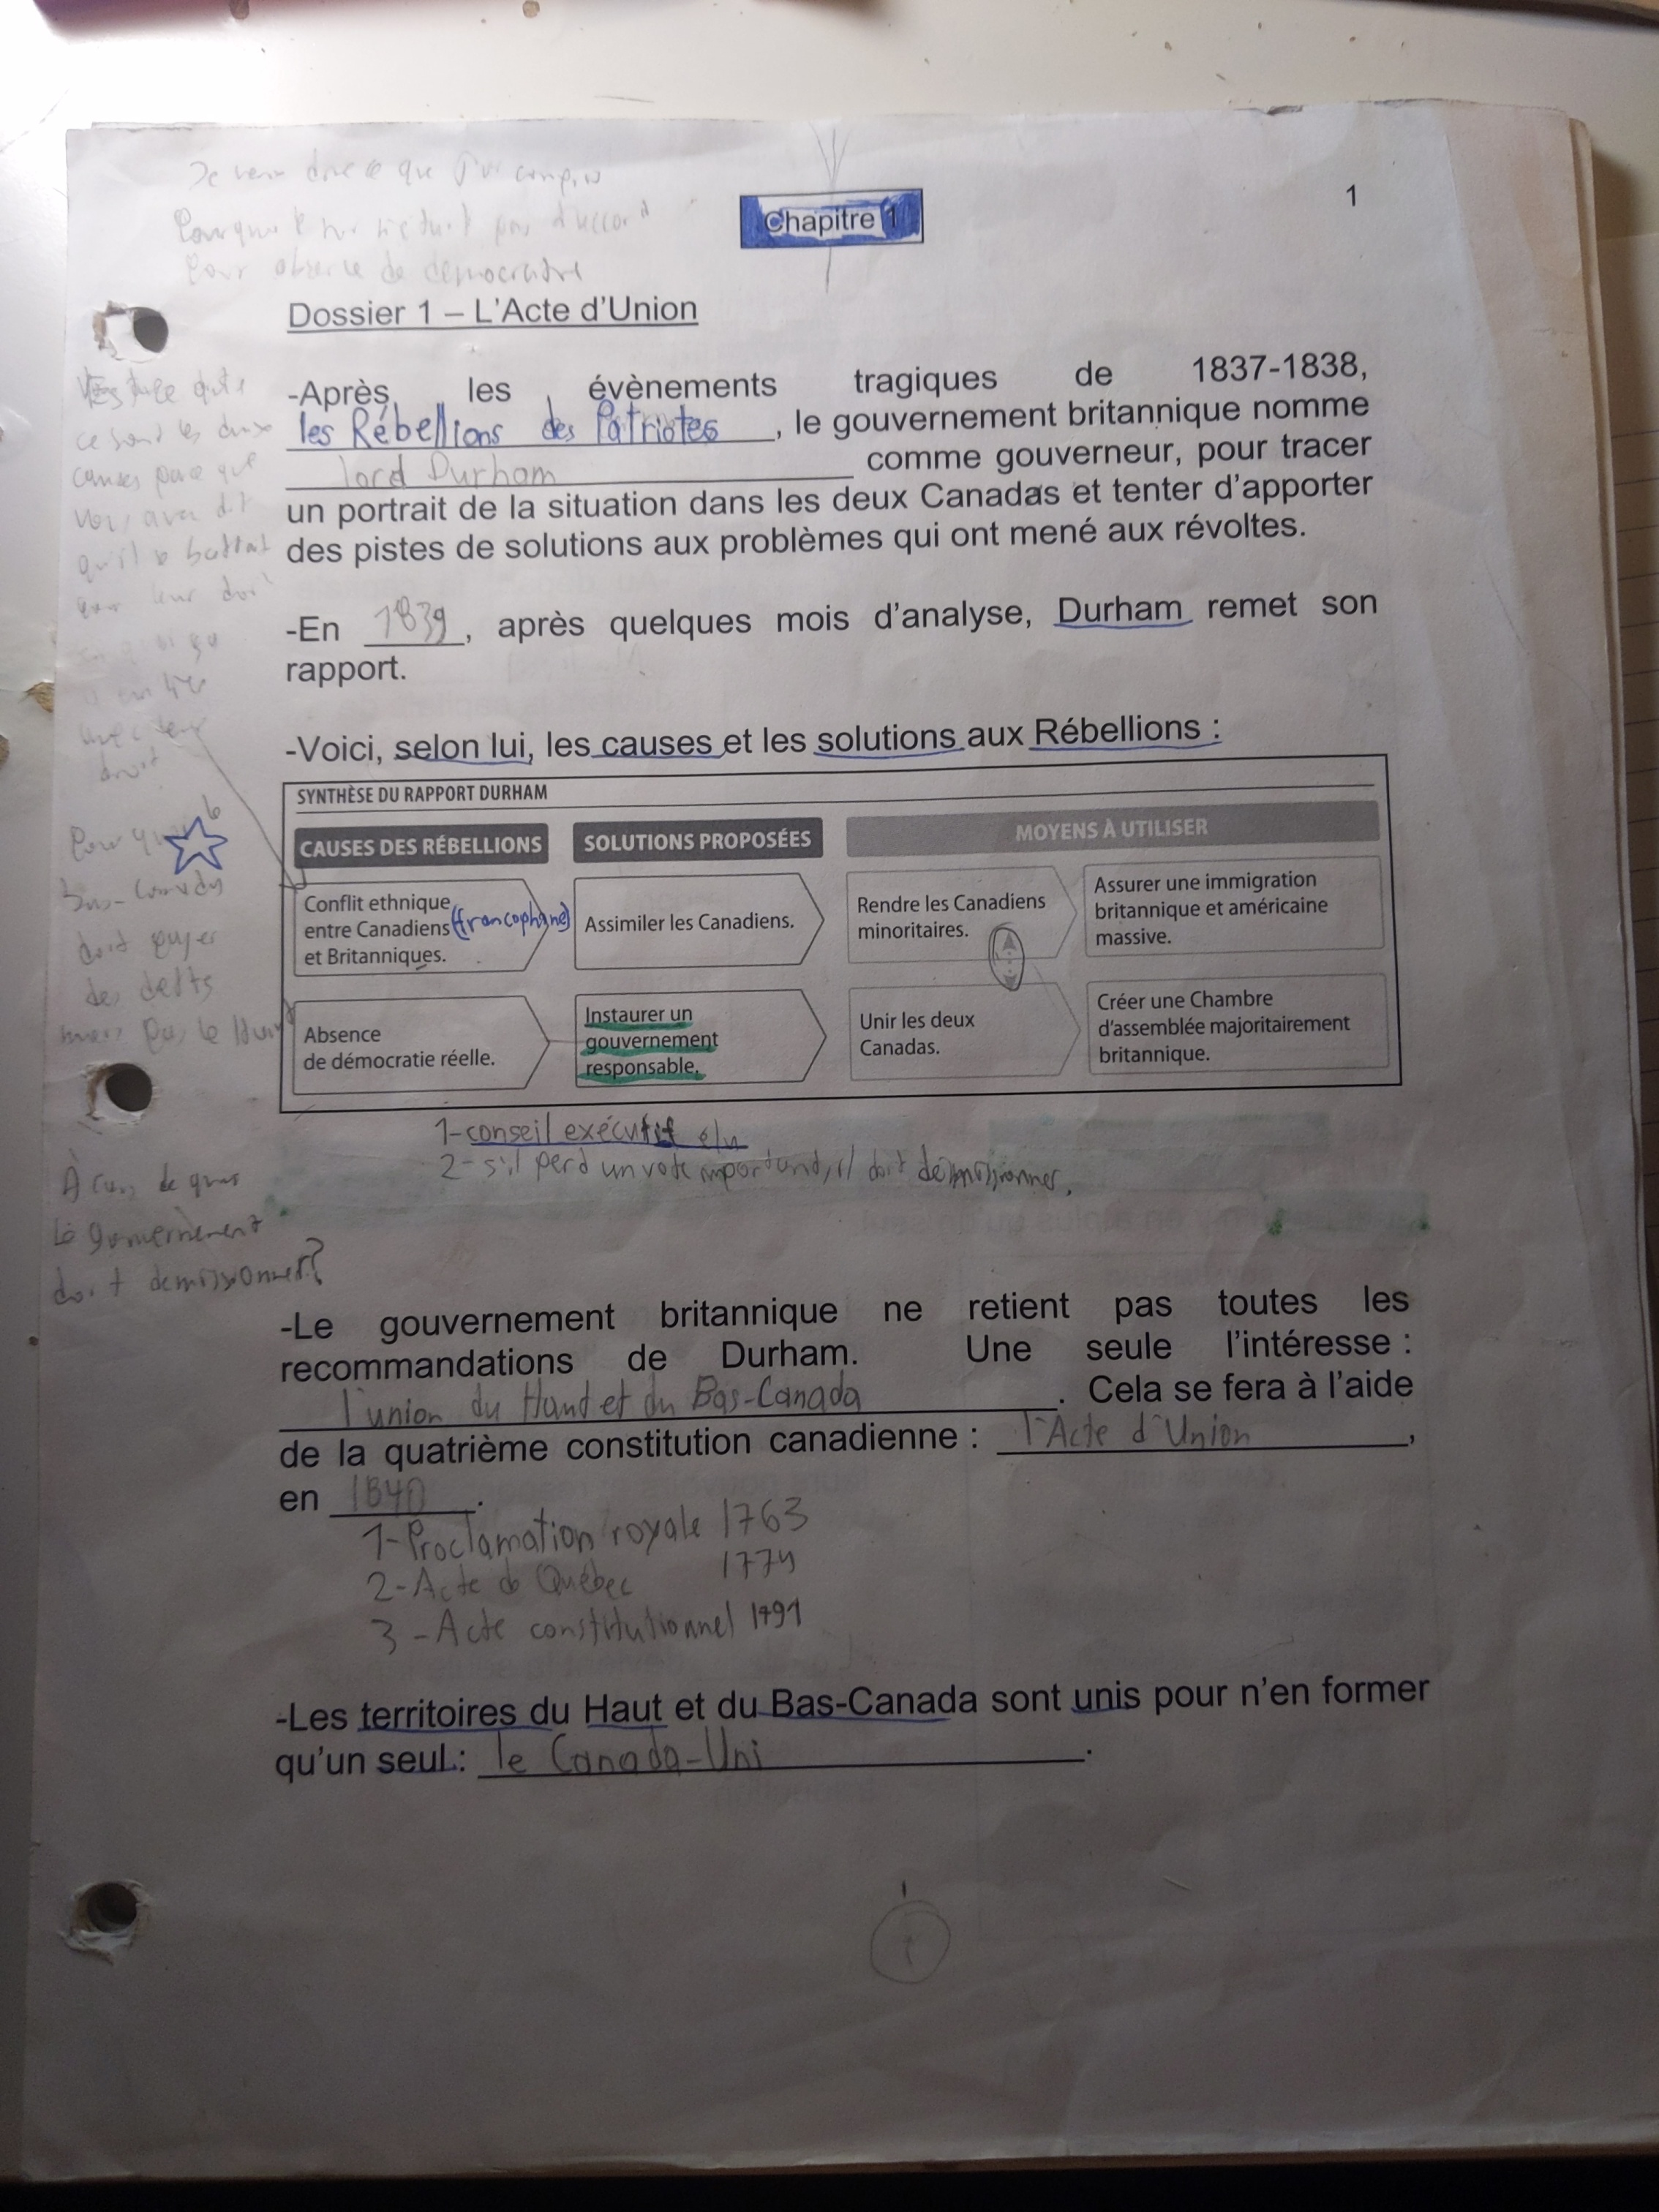 que
Pour absence de démocratie
1
Chapitre 1
Dossier 1 – L'Acte d'Union
-Après les évènements tragiques de 1837-1838,
les Rébellions des Patriotes, le gouvernement britannique nomme
lord Durham comme gouverneur, pour tracer
un portrait de la situation dans les deux Canadas et tenter d'apporter
des pistes de solutions aux problèmes qui ont mené aux révoltes.
-En 1839, après quelques mois d'analyse, Durham remet son
rapport.
-Voici, selon lui, les causes et les solutions aux Rébellions :
ce sont les deux
causes parce que
vous avez dit
droit
SYNTHÈSE DU RAPPORT DURHAM
CAUSES DES RÉBELLIONS
SOLUTIONS PROPOSÉES
MOYENS À UTILISER
Conflit ethnique
entre Canadiens (francophone)
et Britanniques.
Assimiler les Canadiens.
Rendre les Canadiens
minoritaires.
Assurer une immigration
britannique et américaine
massive.
Absence
de démocratie réelle.
Instaurer un
gouvernement
responsable.
Unir les deux
Canadas.
Créer une Chambre
d'assemblée majoritairement
britannique.
doit payer
des
pas le
1-conseil exécutif élu
2- s'il perd un vote important, il doit démissionner.
À de quoi
Le gouvernement
doit demissionner?
-Le gouvernement britannique ne retient pas toutes les
recommandations de Durham. Une seule l'intéresse :
l'union du Haut et du Bas-Canada. Cela se fera à l'aide
de la quatrième constitution canadienne : l'Acte d'Union,
en 1840.
1-Proclamation royale 1763
2-Acte de Québec 1774
3-Acte constitutionnel 1791
-Les territoires du Haut et du Bas-Canada sont unis pour n'en former
qu'un seul : le Canada-Uni.